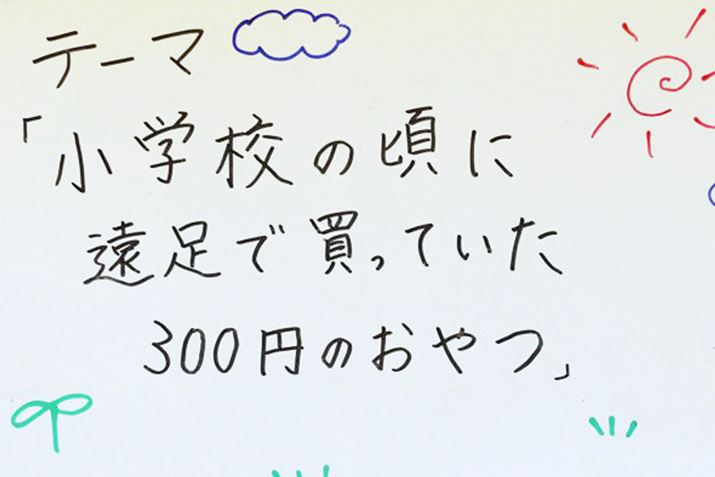 テーマ
「小学校の頃に
遠足で買っていた
300円のおやつ」